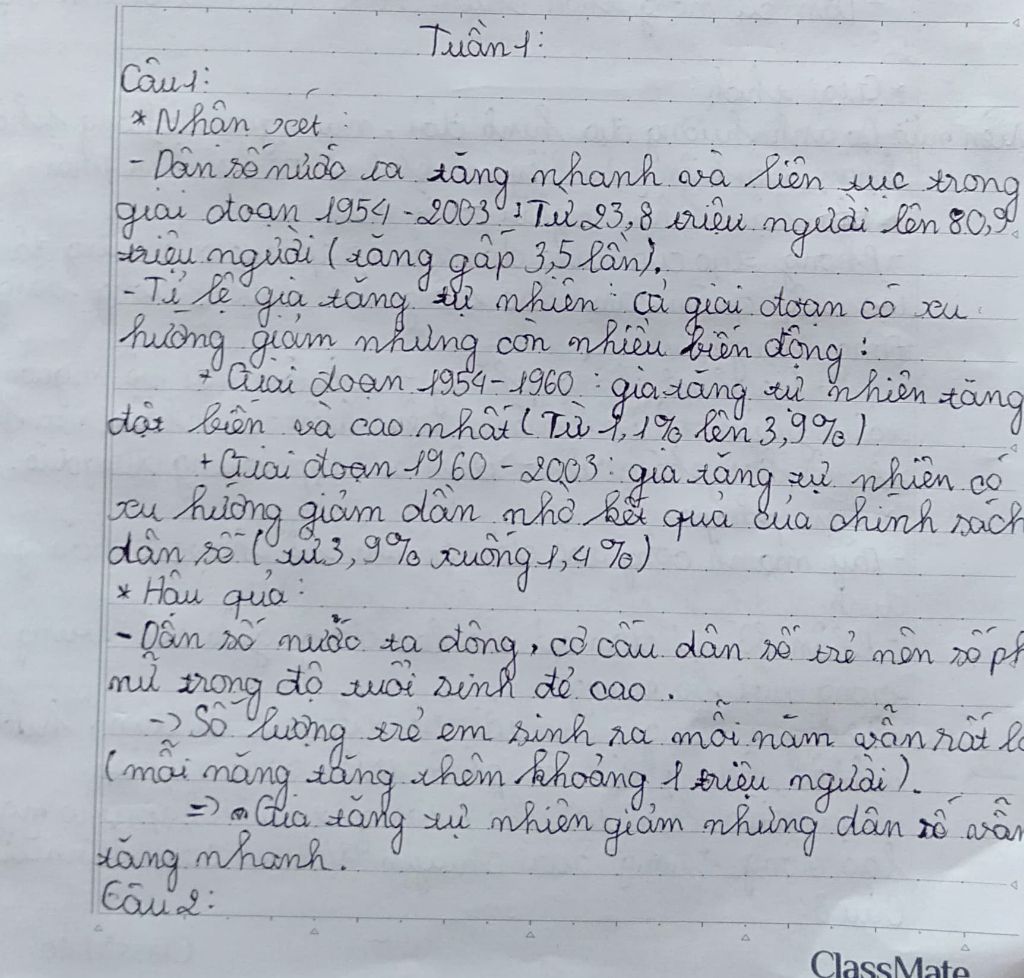 Tuần 1:
Câu 1:
* Nhận xét:
- Dân số nước ta tăng nhanh và liên tục trong
giai đoạn 1954 - 2003: Từ 23,8 triệu người lên 80,9
triệu người (tăng gấp 3,5 lần).
- Tỉ lệ gia tăng tự nhiên: cả giai đoạn có xu
hướng giảm nhưng còn nhiều biến động:
+ Giai đoạn 1954 - 1960: gia tăng tự nhiên tăng
đột biến và cao nhất (Từ 1,1% lên 3,9%)
+ Giai đoạn 1960 - 2003: gia tăng tự nhiên có
xu hướng giảm dần nhờ kết quả của chính sách
dân số (từ 3,9% xuống 1,4%)
* Hậu quả:
- Dân số nước ta đông, cơ cấu dân số trẻ nên số
nữ trong độ tuổi sinh đẻ cao.
-> Số lượng trẻ em sinh ra mỗi năm vẫn rất
(mỗi năng tăng thêm khoảng 1 triệu người).
=> Gia tăng tự nhiên giảm nhưng dân số vẫn
tăng nhanh.
Câu 2:
ClassMate